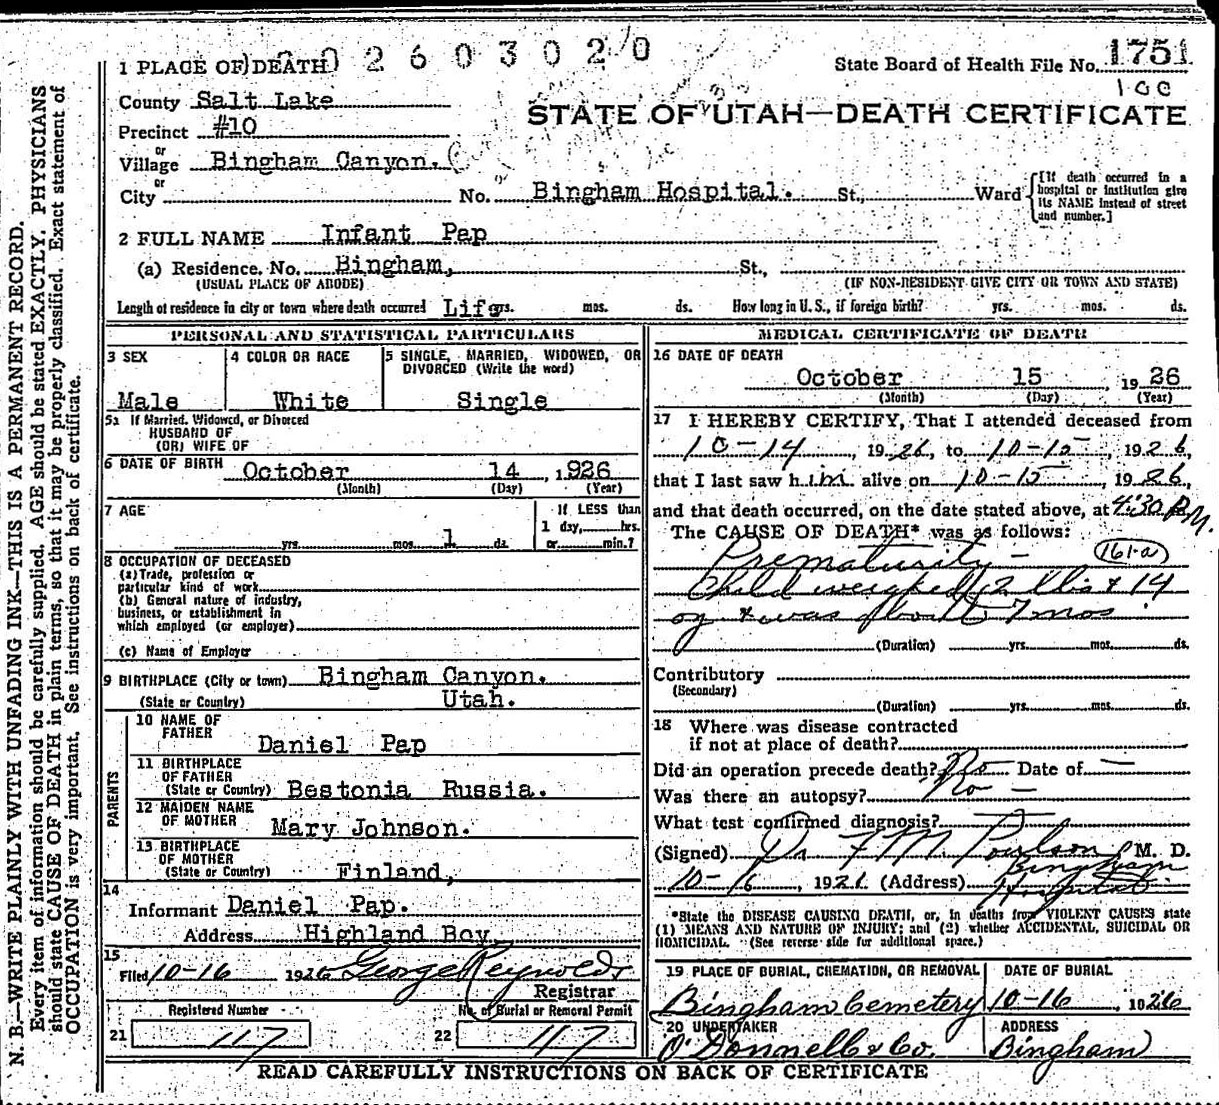 1 PLACE OF DEATH 0 0 2 6 0 3 0 2 0
State Board of Health File No. 1751
100
County Salt Lake
STATE OF UTAH—DEATH CERTIFICATE
Precinct #10
or
Village Bingham Canyon.
or
City No. Bingham Hospital. St., Ward
[If death occurred in a hospital or institution give its NAME instead of street and number.]
2 FULL NAME Infant Pap
(a) Residence. No. Bingham, St.,
(USUAL PLACE OF ABODE) (IF NON-RESIDENT GIVE CITY OR TOWN AND STATE)
Length of residence in city or town where death occurred Life yrs. mos. ds. How long in U. S., if foreign birth? yrs. mos. ds.
PERSONAL AND STATISTICAL PARTICULARS
3 SEX
Male
4 COLOR OR RACE
White
5 SINGLE, MARRIED, WIDOWED, OR DIVORCED (Write the word)
Single
5a If Married, Widowed, or Divorced
HUSBAND OF
(OR) WIFE OF
6 DATE OF BIRTH October 14, 1926
(Month) (Day) (Year)
7 AGE
yrs. mos. 1 ds.
If LESS than
1 day, hrs.
or min.?
8 OCCUPATION OF DECEASED
(a) Trade, profession or
particular kind of work
(b) General nature of industry,
business, or establishment in
which employed (or employer)
(c) Name of Employer
9 BIRTHPLACE (City or town) Bingham Canyon.
(State or Country) Utah.
PARENTS
10 NAME OF
FATHER
Daniel Pap
11 BIRTHPLACE
OF FATHER
(State or Country) Bestonia Russia.
12 MAIDEN NAME
OF MOTHER
Mary Johnson.
13 BIRTHPLACE
OF MOTHER
(State or Country) Finland,
14
Informant Daniel Pap.
Address Highland Boy
15
Filed 10-16 1926 George Reynolds
Registrar
Registered Number
21 117
No. of Burial or Removal Permit
22 117
MEDICAL CERTIFICATE OF DEATH
16 DATE OF DEATH
October 15, 1926
(Month) (Day) (Year)
17 I HEREBY CERTIFY, That I attended deceased from
10-14, 1926, to 10-15, 1926,
that I last saw him alive on 10-15, 1926,
and that death occurred, on the date stated above, at 4:30 P.M.
The CAUSE OF DEATH* was as follows:
Prematurity — 161-a
Child weighed 2 lbs & 14
oz & was about 7 mos
(Duration) yrs. mos. ds.
Contributory
(Secondary)
(Duration) yrs. mos. ds.
18 Where was disease contracted
if not at place of death?
Did an operation precede death? No Date of —
Was there an autopsy? No —
What test confirmed diagnosis?
(Signed) Dr F M Poulson M. D.
10-16, 1926 (Address) Bingham
Hospital
*State the DISEASE CAUSING DEATH, or, in deaths from VIOLENT CAUSES state
(1) MEANS AND NATURE OF INJURY; and (2) whether ACCIDENTAL, SUICIDAL OR
HOMICIDAL. (See reverse side for additional space.)
19 PLACE OF BURIAL, CREMATION, OR REMOVAL
Bingham Cemetery
DATE OF BURIAL
10-16, 1926
20 UNDERTAKER
O'Donnell & Co.
ADDRESS
Bingham
READ CAREFULLY INSTRUCTIONS ON BACK OF CERTIFICATE
N. B.—WRITE PLAINLY WITH UNFADING INK—THIS IS A PERMANENT RECORD.
Every item of information should be carefully supplied. AGE should be stated EXACTLY. PHYSICIANS
should state CAUSE OF DEATH in plain terms, so that it may be properly classified. Exact statement of
OCCUPATION is very important. See instructions on back of certificate.